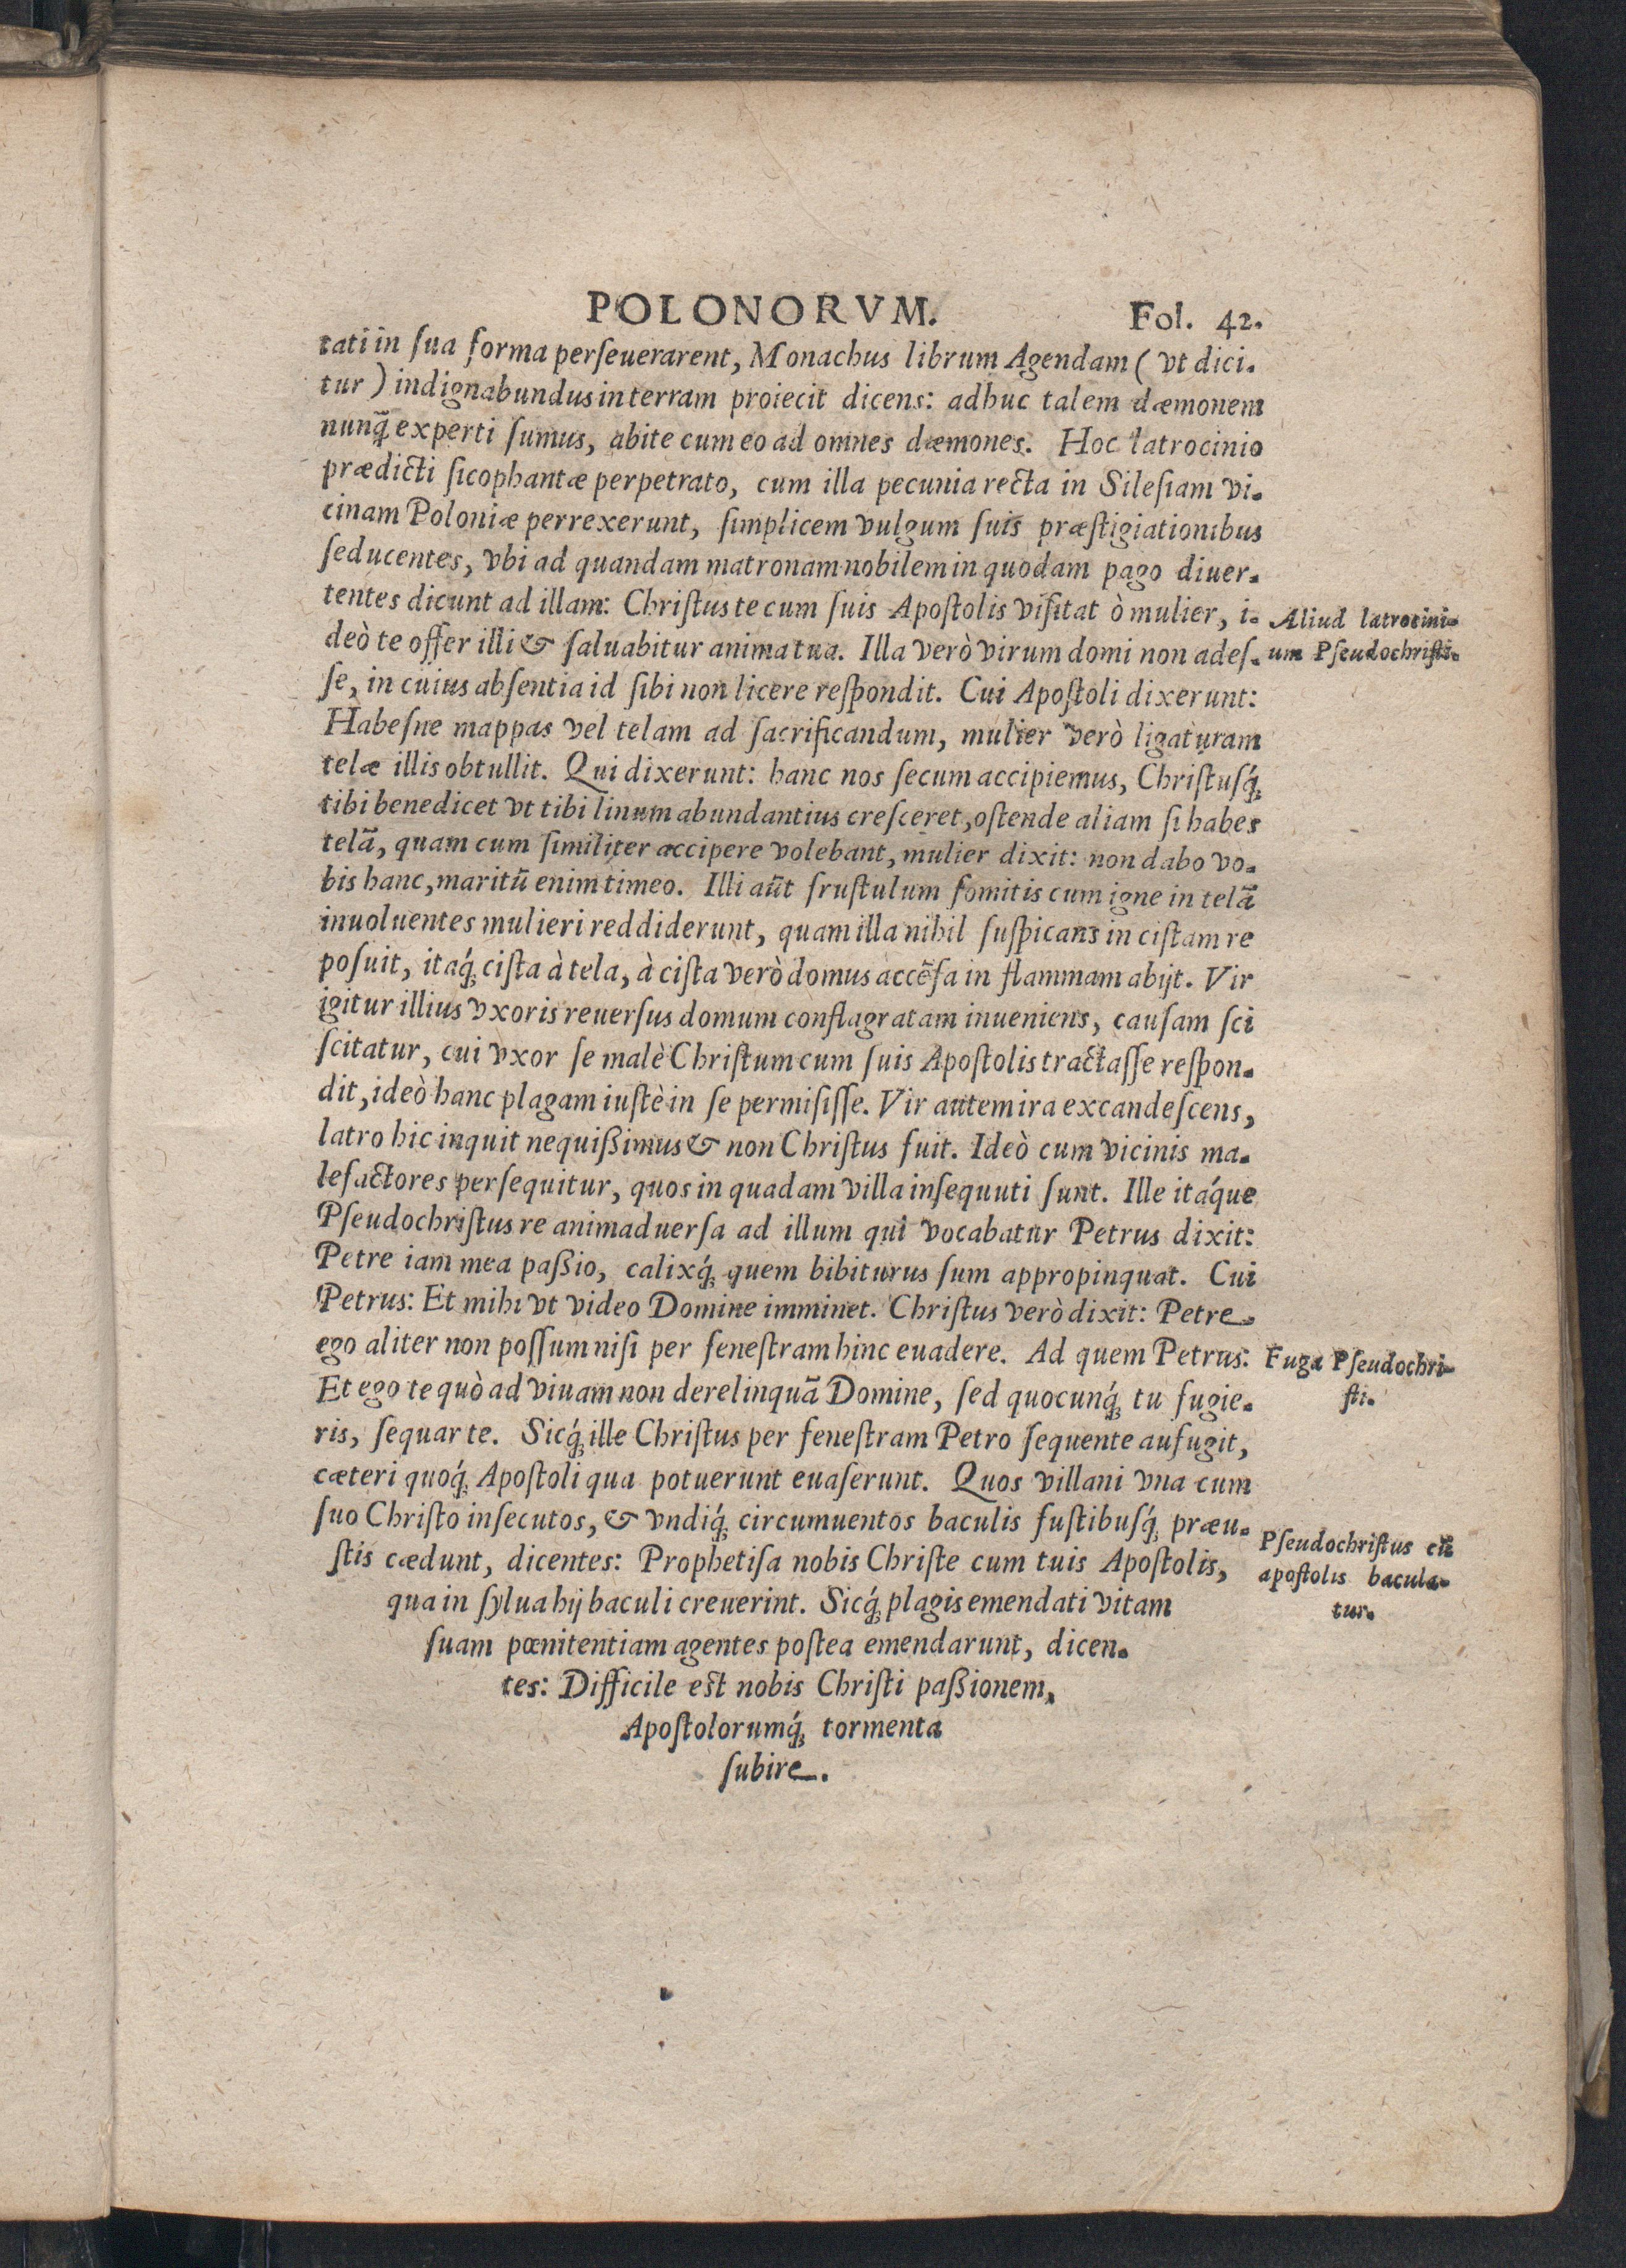 POLONORVM. Fol. 42.
tati in ſua forma perſeuerarent, Monachus librum Agendam ( vt dici-
tur ) indignabundus in terram proiecit dicens: adhuc talem dæmonem
nunq̃ experti ſumus, abite cum eo ad omnes dæmones. Hoc latrocinio
prædicti ſicophantæ perpetrato, cum illa pecunia recta in Sileſiam vi-
cinam Poloniæ perrexerunt, ſimplicem vulgum ſuis præſtigiationibus
ſeducentes, vbi ad quandam matronam nobilem in quodam pago diuer-
tentes dicunt ad illam: Chriſtus te cum ſuis Apoſtolis viſitat ò mulier, i-
deò te offer illi & ſaluabitur anima tua. Illa verò virum domi non adeſ-
ſe, in cuius abſentia id ſibi non licere reſpondit. Cui Apoſtoli dixerunt:
Habeſne mappas vel telam ad ſacrificandum, mulier verò ligaturam
telæ illis obtullit. Qui dixerunt: hanc nos ſecum accipiemus, Chriſtuſq́;
tibi benedicet vt tibi linum abundantius creſceret, oſtende aliam ſi habes
telã, quam cum ſimiliter accipere volebant, mulier dixit: non dabo vo-
bis hanc, maritũ enim timeo. Illi aũt fruſtulum fomitis cum igne in telã
inuoluentes mulieri reddiderunt, quam illa nihil ſuſpicans in ciſtam re
poſuit, itaq́; ciſta à tela, à ciſta verò domus accẽſa in flammam abijt. Vir
igitur illius vxoris reuerſus domum conflagratam inueniens, cauſam ſci
ſcitatur, cui vxor ſe malè Chriſtum cum ſuis Apoſtolis tractaſſe reſpon-
dit, ideò hanc plagam iuſtè in ſe permiſiſſe. Vir autem ira excandeſcens,
latro hic inquit nequißimus & non Chriſtus fuit. Ideò cum vicinis ma-
lefactores perſequitur, quos in quadam villa inſequuti ſunt. Ille itáque
Pſeudochriſtus re animaduerſa ad illum qui vocabatur Petrus dixit:
Petre iam mea paßio, calixq́; quem bibiturus ſum appropinquat. Cui
Petrus: Et mihi vt video Domine imminet. Chriſtus verò dixit: Petre
ego aliter non poſſum niſi per feneſtram hinc euadere. Ad quem Petrus:
Et ego te quò ad viuam non derelinquã Domine, ſed quocunq́; tu fugie-
ris, ſequar te. Sicq́; ille Chriſtus per feneſtram Petro ſequente aufugit,
cæteri quoq́; Apoſtoli qua potuerunt euaſerunt. Quos villani vna cum
ſuo Chriſto inſecutos, & vndiq́; circumuentos baculis fuſtibuſq́; præu-
ſtis cædunt, dicentes: Prophetiſa nobis Chriſte cum tuis Apoſtolis,
qua in ſylua hij baculi creuerint. Sicq́; plagis emendati vitam
ſuam pœnitentiam agentes poſtea emendarunt, dicen-
tes: Difficile eſt nobis Chriſti paßionem,
Apoſtolorumq́; tormenta
ſubire.
Aliud latrocini-
um Pſeudochriſti.
Fuga Pſeudochri-
ſti.
Pſeudochriſtus cũ
apoſtolis bacula-
tur.